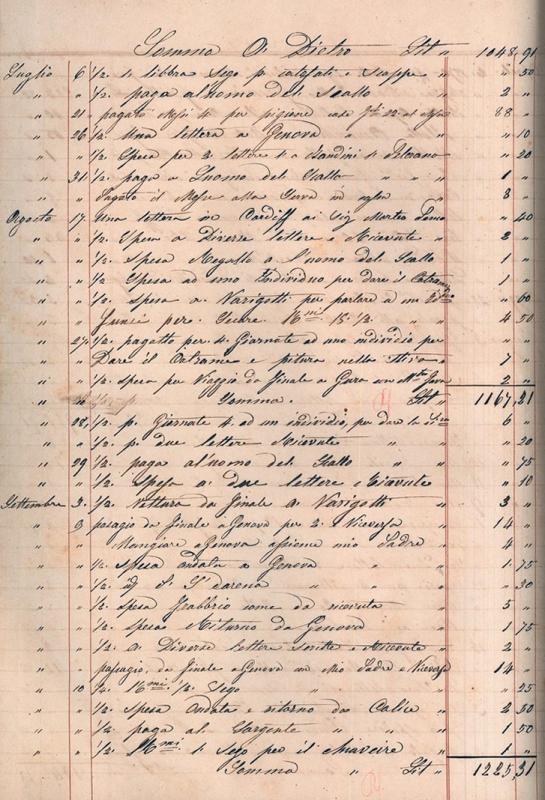 Somma Di Dietro Lit " 1048,91
Luglio 6 1/2 libbra Sego p. e Scappe " " 50
" " 1/2. paga al'uomo del Scallo " 2 "
" 21 pagato Mesi 4 per pigione " 88 "
" 26 1/2 Una lettera a Genova " " " 10
" " 1/2 Spesa per 2 lettere " " 20
" 31 1/2 paga a Luomo del Scallo " " " 1 "
" " Pagato il Mese alla Serva " 8 "
Agosto 17 Una lettera in Cardiff ai Sig. " " 40
" " 1/2 Spesa a Diverse lettere e Ricevute " 2 "
" " 1/2 Spesa Regallo a l'uomo del Scallo " 1 "
" " 1/2 Spesa ad uno Individuo per dare il Catrame 1 "
" " 1/2 spesa a. Varigotti per parlare a un " 60
" " 16 mi 15 1/2 " 4 50
" 27 1/2 pagatto per 4 Giornate ad uno individio per
" " Dare il Catrame e pitura nella Stiva " 7 "
" " 1/2 spesa per Viaggio da Finale a " 2 "
" Somma. Lit " 1167,21
" 28 1/2 p. Giornate 4 ad un individio, per dare la " 6 "
" " 1/2 p. due lettere Ricevute " " " 20
" 29 1/2 paga al'uomo del Scallo " " " 75
" " 1/2 Spesa a due lettere e Ricevute " " 10
Settembre 3. 1/2 Vettura da Finale a Varigotti " 3 "
" 9 pasagio da Finale a Genova per 2. Viceversa " 14 "
" " Mangiare a Genova assieme mio Padre " 4 "
" " 1/2 spesa andata a Genova " " 1 75
" " 1/2 id S. P. darena " " " 30
" " 1/2 spesa Frabbrio come da ricevuta " 5 "
" " 1/2 spesa Ritorno da Genova " 1 75
" " 1/2 a Diverse lettere scritte e Ricevute " 2 "
" " passagio, da Finale a Genova un Mio Padre e Viceversa 14 "
" 10 16 mi 1/2 Sego " " " 25
" " 1/2 spesa Andata e ritorno da Calice " 2 50
" " 1/2 paga al Sargente " " 1 50
" " 1/2 mi Sego per il " 1 "
Somma " Lit " 1225,31